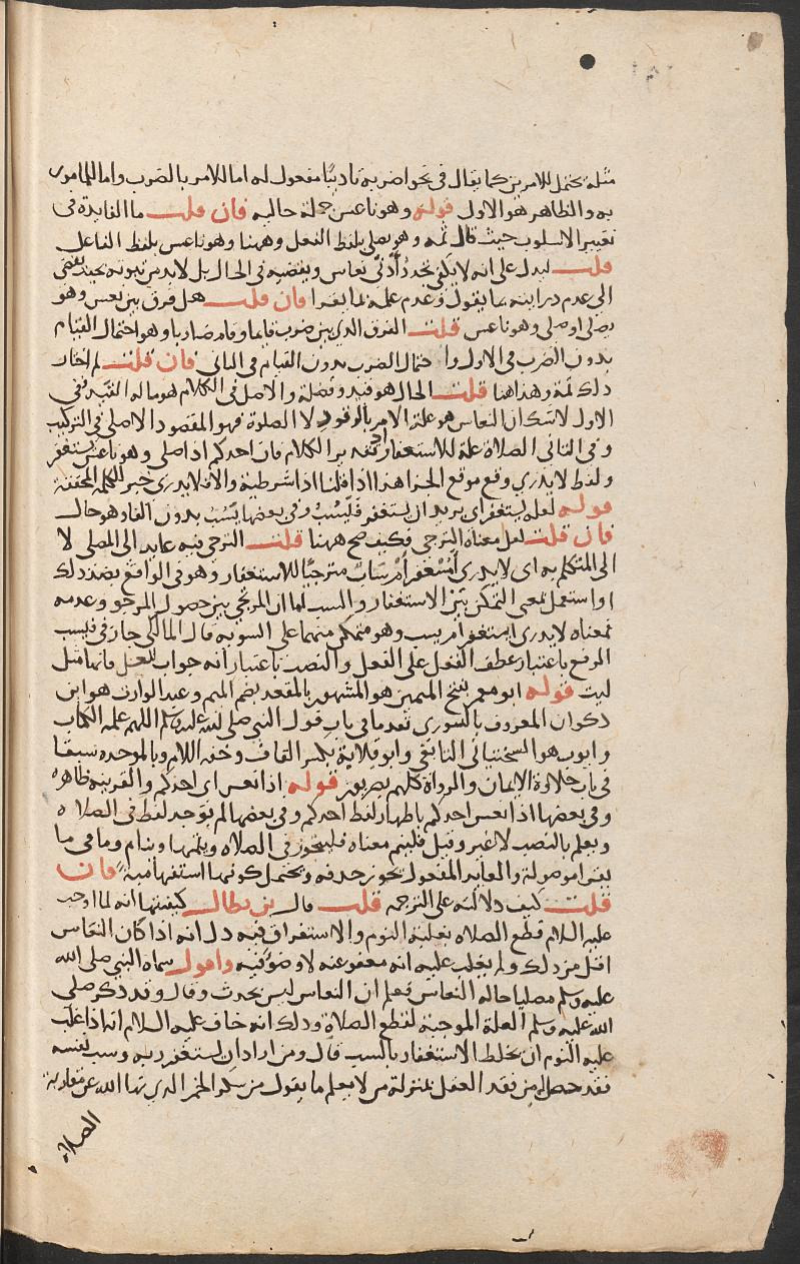 مثله يحتمل للامرين كما يقال في نحو اضربه تاديبا مفعول له اما للامر بالضرب واما للمامور
به والظاهر هو الاول قوله وهو ناعس جملة حالية فان قلت ما الفايدة في
تغيير الاسلوب حيث قال ثمه وهو يصلي بلفظ الفعل وههنا وهو ناعس بلفظ الفاعل
قلت ليدل على انه لا يكفي تجدد ادنى نعاس وتقضيه في الحال بل لابد من ثبوته بحيث يفضي
الى عدم درايته بما يقول وعدم علمه بما يقرا فان قلت هل فرق بين نعس وهو
يصلي او صلى وهو ناعس قلت الفرق الذي بين ضرب قايما وقام ضاربا وهو احتمال القيام
بدون الضرب في الاول واحتمال الضرب بدون القيام في الثاني فان قلت لم اختار
ذلك ثمة وهذا هنا قلت الحال هو قيد وفضلة والاصل في الكلام هو ما له القيد ففي
الاول لا شك ان النعاس هو علة الامر بالرقود لا الصلوة فهو المقصود الاصلي في التركيب
وفي الثاني الصلاة علة للاستغفار اذ تقدير الكلام فان احدكم اذا صلى وهو ناعس يستغفر
ولفظ لا يدري وقع موقع الجزا هذا اذا قلنا اذا شرطية والا فلا يدري خبر لكلمة المحققة
قوله لعله يستغفر اي يريد ان يستغفر فيسب وفي بعضها يسب بدون الفا وهو حال
فان قلت لعل معناه الترجي فكيف صح ههنا قلت الترجي فيه عايد الى المصلي لا
الى المتكلم به اي لا يدري امستغفر ام ساب مترجيا للاستغفار وهو في الواقع بضد ذلك
او استعمل بمعنى التمكن بين الاستغفار والسب لما ان المرتجي بين حصول المرجو وعدمه
فمعناه لا يدري ايستغفر ام يسب وهو متمكن منهما على السوية قال المالكي جاز في فيسب
الرفع باعتبار عطف الفعل على الفعل والنصب باعتبار انه جواب لعل فانها مثل
ليت قوله ابو معمر بفتح الميمين هو المشهور بالمقعد بضم الميم وعبد الوارث هو ابن
ذكوان المعروف بالتنوري تقدما في باب قول النبي صلى الله عليه وسلم اللهم علمه الكتاب
وايوب هو السختياني التابعي وابو قلابة بكسر القاف وخفة اللام وبالموحدة سبقا
في باب حلاوة الايمان والرواة كلهم بصريون قوله اذا نعس اي احدكم والقرينة ظاهرة
وفي بعضها اذا نعس احدكم باظهار لفظ احدكم وفي بعضها لم يوجد لفظ في الصلاة
ويعلم بالنصب لا غير وقيل فلينم معناه فليتجوز في الصلاة ويتمها وينام وما في ما
يقرا موصولة والعايد المفعول يجوز حذفه ويحتمل كونها استفهامية فان
قلت كيف دلالته على الترجمة قلت قال بن بطال كيفيتها انه لما اوجب
عليه السلام قطع الصلاة بغلبة النوم والاستغراق فيه دل انه اذا كان النعاس
اقل من ذلك ولم يغلب عليه انه معفو عنه لا وضو فيه واقول سماه النبي صلى الله
عليه وسلم مصليا حالة النعاس فعلم ان النعاس ليس بحدث وقال وقد ذكر صلى
الله عليه وسلم العلة الموجبة لقطع الصلاة وذلك انه خاف عليه السلام انه اذا غلب
عليه النوم ان يخلط الاستغفار بالسب قال ومن اراد ان يستغفر ربه وسب نفسه
فقد حصل من فقد العقل بمنزلة من لا يعلم ما يقول من سكر الخمر الذي نهى الله عن مقاربة
الصلاة